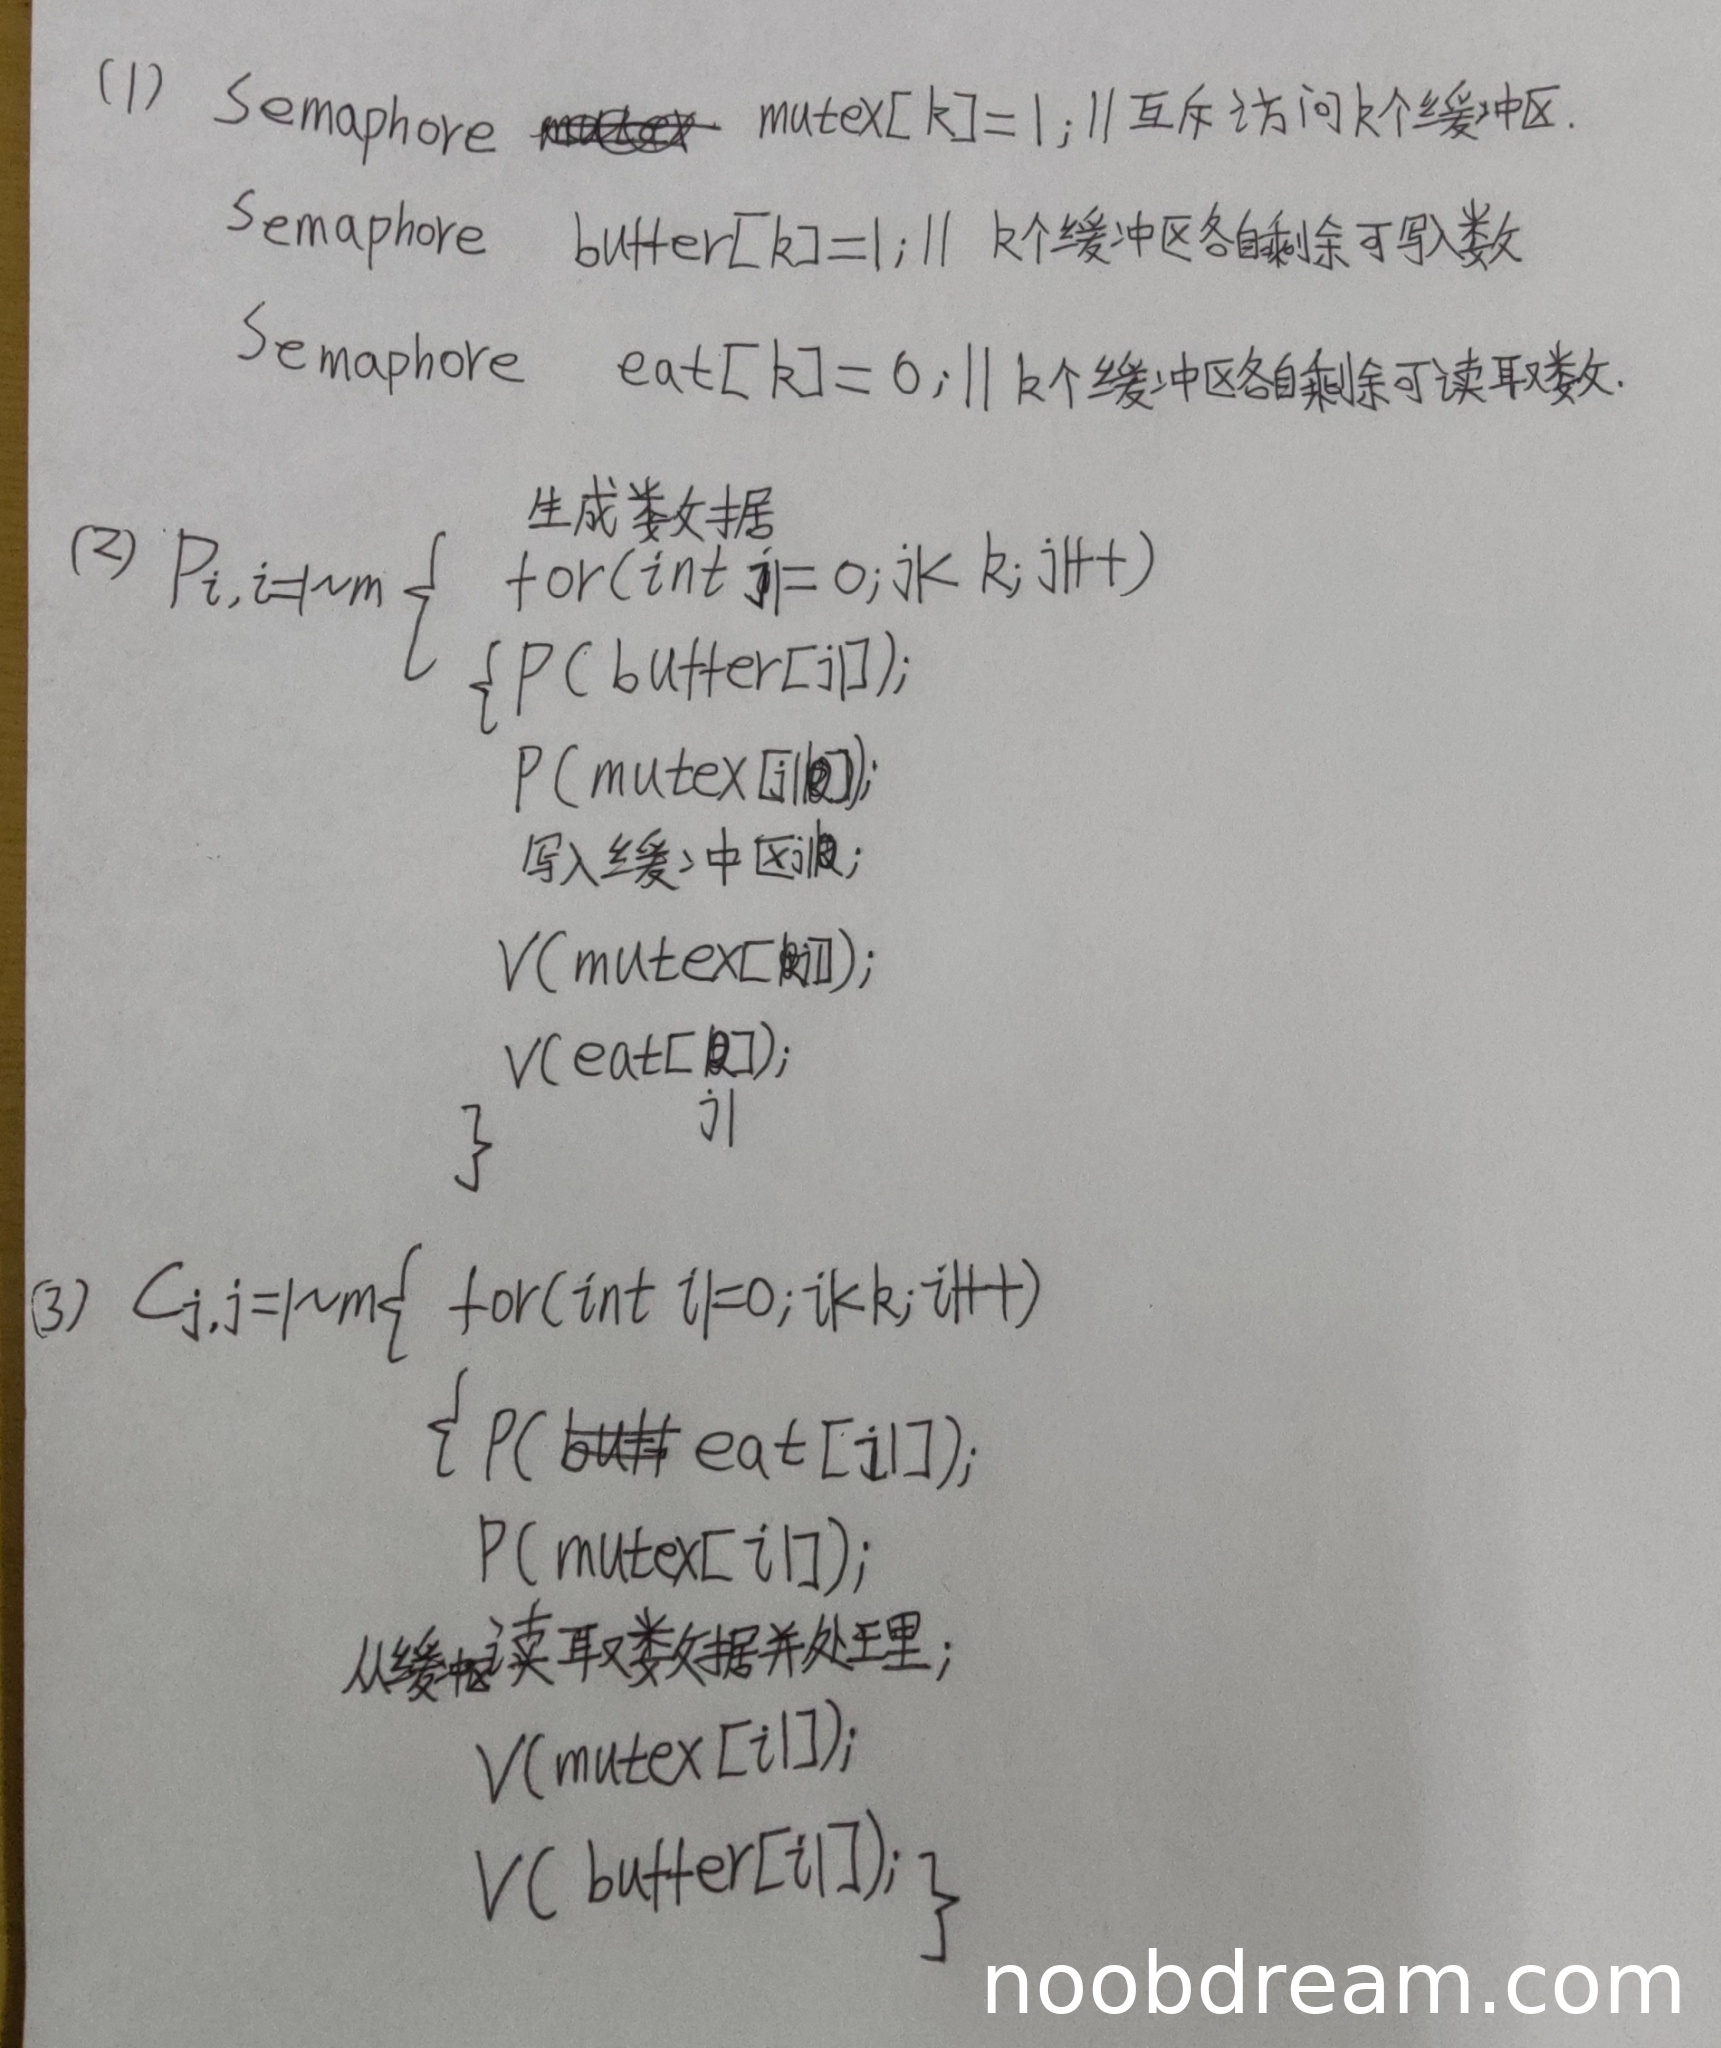 (1) Semaphore mutex mutex[k]=1; // 互斥访问k个缓冲区.
Semaphore buffer[k]=1; // k个缓冲区各自剩余可写入数
Semaphore eat[k]=0; // k个缓冲区各自剩余可读取数.
生成数据
(2) Pi, i=1~m { for(int j1=0; j1<k; j1++)
{ P(buffer[j1]);
P(mutex[j1]);
写入缓冲区j1;
V(mutex[j1]);
V(eat[ ]);
j1
}
(3) Cj, j=1~m { for(int i1=0; i1<k; i1++)
{ P(buff eat[i1]);
P(mutex[i1]);
从缓冲区读取数据并处理;
V(mutex[i1]);
V(buffer[i1]); }
noobdream.com